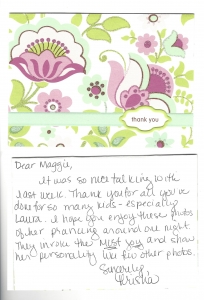 thank you
Dear Maggie,
It was so nice talking with
last week. Thank you for all you've
done for so many kids - especially
Laura. I hope you enjoy these photos
of her prancing around one night.
They invoke the most joy and show
her personality like few other photos.
Sincerely,
Krista